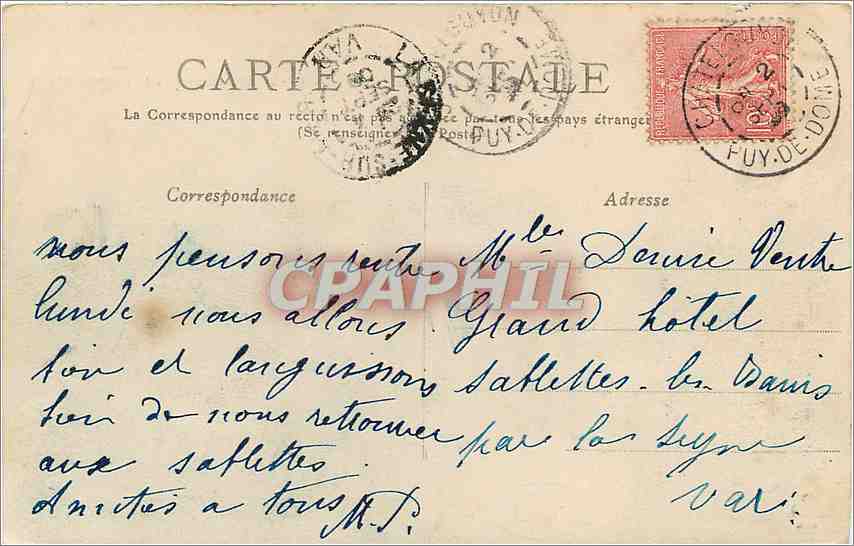 CARTE POSTALE
La Correspondance au recto n'est pas par tous les pays étranger
(Se renseigner Poste)
Correspondance
Adresse
nous pensons rentre
lundi nous allons
bien et languissons
bien de nous retrouver
aux sablettes.
Amitiés a tous
M.P.
Mlle Denise Ventre
Grand hôtel
Sablettes-les-Bains
par la seyne
Var.
CPAPHIL
REPUBLIQUE FRANÇAISE
POSTES
10
CHATELGUYON
PUY-DE-DOME
CHATELGUYON
PUY-DE-DOME
LA SEYNE-SUR-MER
VAR